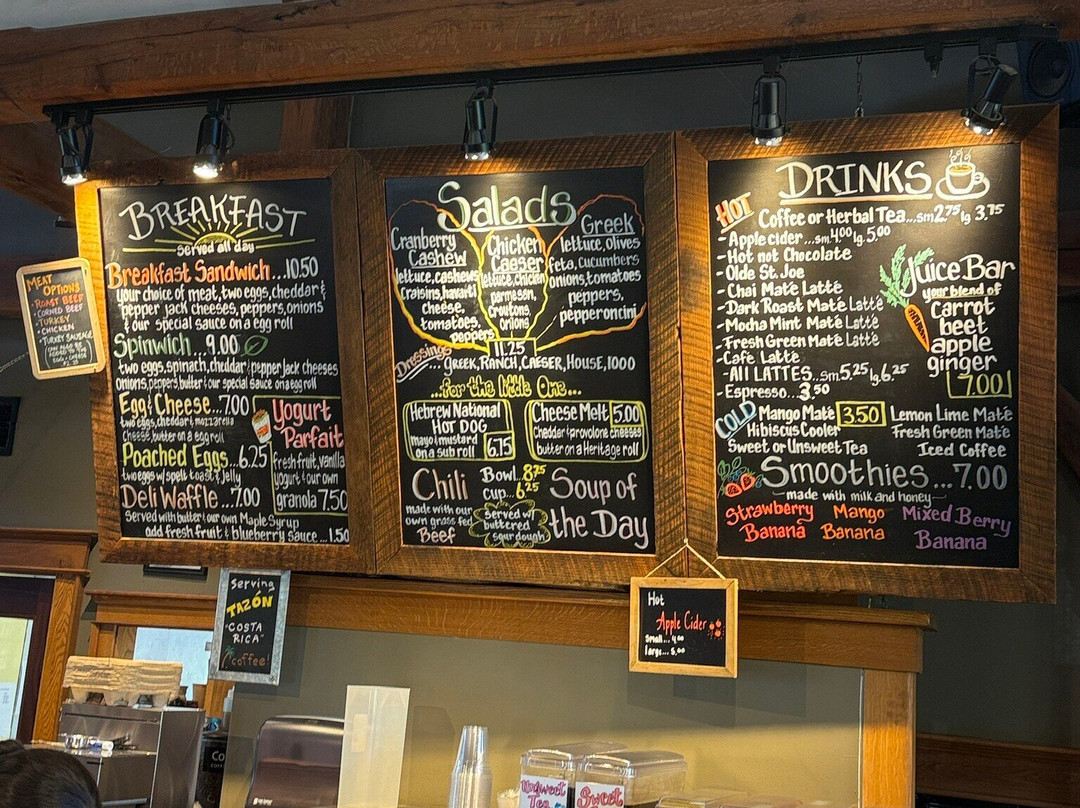 MEAT
OPTIONS
- ROAST BEEF
- CORNED BEEF
- TURKEY
- CHICKEN
- TURKEY SAUSAGE
BREAKFAST
served all day
Breakfast Sandwich...10.50
your choice of meat, two eggs, cheddar &
pepper jack cheeses, peppers, onions
& our special sauce on a egg roll
Spinwich 9.00
two eggs, spinach, cheddar & pepper jack cheeses
onions, peppers, butter & our special sauce on a egg roll
Egg & Cheese...7.00
two eggs, cheddar & mozzarella
cheese, butter on a egg roll
Poached Eggs...6.25
two eggs w/ spelt toast & jelly
Deli Waffle...7.00
Served with butter & our own Maple Syrup
add fresh fruit & blueberry sauce...1.50
Yogurt
Parfait
fresh fruit, vanilla
yogurt & our own
granola 7.50
Salads
Cranberry
Cashew
lettuce, cashews
Craisins, havarti
cheese,
tomatoes,
peppers
Chicken
Caeser
lettuce, chicken
parmeson,
croutons,
onions
Greek
lettuce, olives
feta, cucumbers
onions, tomatoes
peppers,
pepperoncini
11.25
Dressings... GREEK, RANCH, CAESER, HOUSE, 1000
...for the little One...
Hebrew National
HOT DOG
mayo & mustard
on a sub roll 6.75
Cheese Melt 5.00
Cheddar & provolone cheeses
butter on a Heritage roll
Chili
made with our
own grass fed
Beef
Bowl..8.75
Cup...6.25
Served w/
buttered
sourdough
Soup of
the Day
DRINKS
HOT
Coffee or Herbal Tea...sm 2.75 lg 3.75
- Apple cider...sm 4.00 lg 5.00
- Hot not Chocolate
- Olde St. Joe
- Chai Maté Latté
- Dark Roast Maté Latté
- Mocha Mint Maté Latté
- Fresh Green Maté Latté
- Café Latté
- All LATTES...sm 5.25 lg 6.25
- Espresso...3.50
Juice Bar
your blend of
carrot
beet
apple
ginger
7.00
COLD
Mango Maté 3.50
Hibiscus Cooler
Sweet or Unsweet Tea
Lemon Lime Maté
Fresh Green Maté
Iced Coffee
Smoothies...7.00
made with milk and honey
Strawberry
Banana
Mango
Banana
Mixed Berry
Banana
Serving
TAZÓN
"COSTA
RICA"
coffee!
Hot
Apple Cider
small...4.00
large...5.00
Unsweet
Tea
Sweet